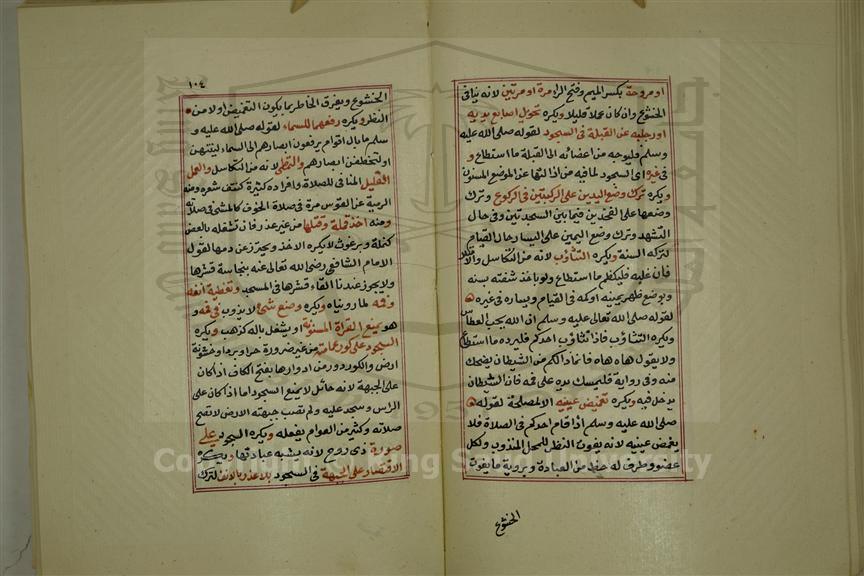 او مروحة بكسر الميم وفتح الرا مرة او مرتين لانه ينافى
الخشوع وان كان عملا قليلا ويكره تحول اصابع يديه
او رجليه عن القبلة فى السجود لقوله صلى الله عليه
وسلم فليوجه من اعضائه الى القبلة ما استطاع و
فى غيره اى السجود لما فيه من ازالتها عن الموضع المسنون
ويكره ترك وضع اليدين على الركبتين فى الركوع وترك
وضعها على الفخذين فيما بين السجدتين وفى حال
التشهد وترك وضع اليمين على اليسار حال القيام
لتركه السنة ويكره التثاؤب لانه من التكاسل والامتلا
فان غلبه فليكظم ما استطاع ولو باخذ شفته بسنه
وبوضع ظهر يمينه او كمه فى القيام ويساره فى غيره
لقوله صلى الله تعالى عليه وسلم ان الله يحب العطاس
ويكره التثاؤب فاذا تثاؤب احدكم فليرده ما استطاع
ولا يقول هاه هاه فانما ذالكم من الشيطان يضحك
منه وفى رواية فليمسك يده على فمه فان الشيطان
يدخل فيه ويكره تغميض عينيه الا لمصلحة لقوله
صلى الله عليه وسلم اذا قام احدكم فى الصلاة فلا
يغمض عينيه لانه يفوت النظر للمحل المندوب ولكل
عضو وطرف له حظ من العبادة وبروية ما يفوت
الخشوع
١٠٤
الخشوع ويفرق الخاطر بما يكون التغميض اولا من
النظر ويكره رفعهما للسماء لقوله صلى الله عليه و
سلم ما بال اقوام يرفعون ابصارهم الى السماء لينتهن
او لتخطفن ابصارهم والتمطى لانه من التكاسل والعمل
القليل المنافى للصلاة وافراده كثيرة كنتف شعره ومنه
الرمية عن القوس مرة فى صلاة الخوف كالمشى فى صلاته
ومنه اخذ قملة وقتلها من غير عذر فان تشغله بالعض
كنملة وبرغوث لا يكره الاخذ ويحترز عن دمها لقول
الامام الشافعى رضى الله تعالى عنه بنجاسة قشرها
ولا يجوز عندنا القاء قشرها فى المسجد وتغطية انفه
وفمه لما رويناه ويكره وضع شئ لا يذوب فى فمه و
هو يمنع القراة المسنونة او يشغل باله كذهب ويكره
السجود على كور عمامته من غير ضرورة حر او برد او خشونة
ارض والكور دور من ادوارها بفتح الكاف اذا كان
على الجبهة لانه حائل لا يمنع السجود اما اذا كان على
الراس وسجد عليه ولم تصب جبهته الارض لا تصح
صلاته وكثير من العوام يفعله ويكره السجود على
صورة ذى روح لانه يشبه عبادتها ويكره
الاقتصار على الجبهة فى السجود بلا عذر بالانف لترك
Copyright © King Saud University